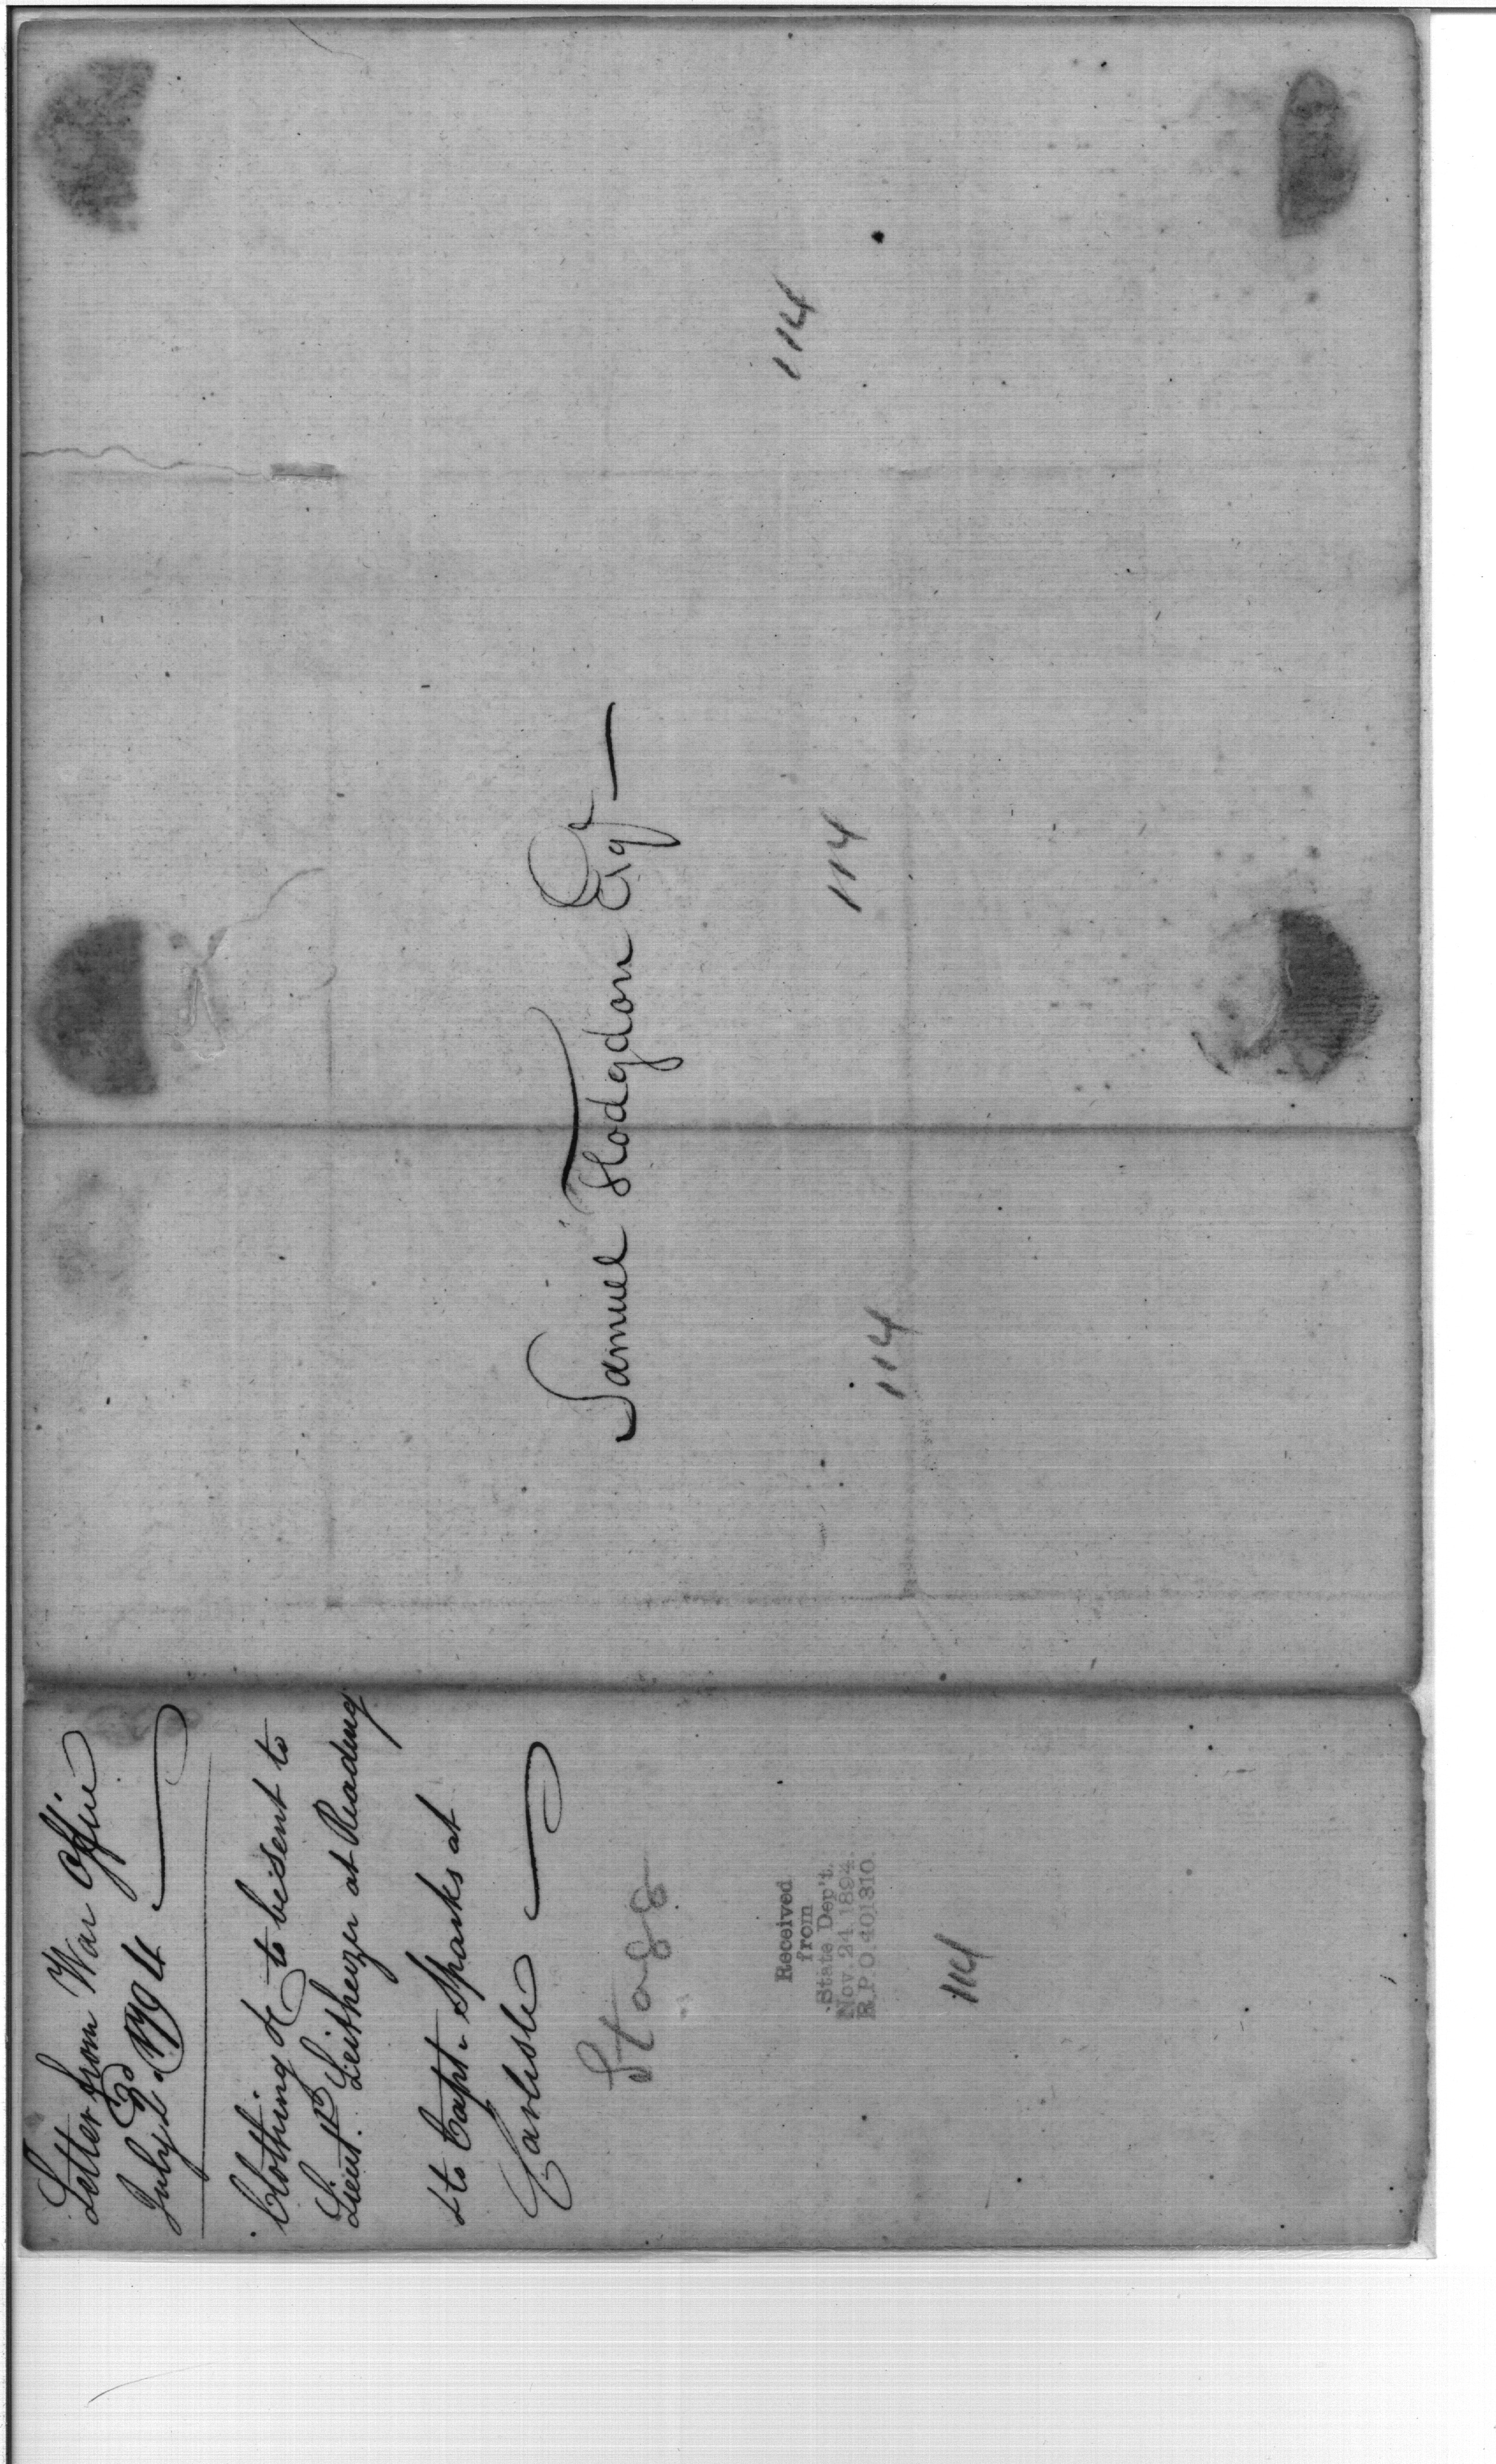 Letter from War Office
July 3d 1794.
Clothing &c to be sent to
Lieut. Leitheizer at Reading
& to Capt. Sparks at
Carlisle
Stagg
Received
from
State Dep't.
Nov. 24 1894.
R.P.O. 401310.
114
Samuel Hodgdon Esqr
114
114
114